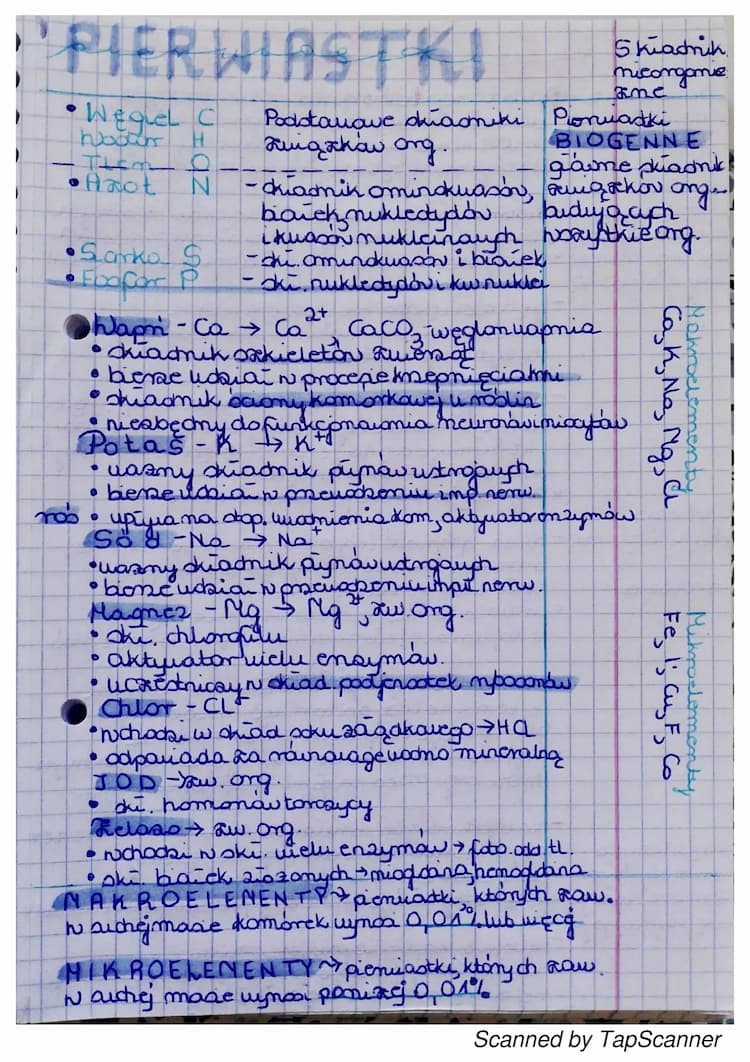 PIERWIASTKI
Składnik
nieorganiczne
• Węgiel C
Wodór H
Tlen O
Podstawowe składniki
związków org.
• Azot N
- składnik aminokwasów,
białek, nukleotydów
i kwasów nukleinowych
• Siarka S - skł. aminokwasów i białek
• Fosfor P - skł. nukleotydów i kw nuklei
Pierwiastki
BIOGENNE
główne składnik
związków org.
budujących
wszystkie org.
Wapń - Ca → Ca2+, CaCO3 - węglan wapnia
• składnik szkieletów zwierząt
• bierze udział w procesie krzepnięcia krwi
• składnik ściany komórkowej u roślin
• niezbędny do funkcjonowania neuronów i miocytów
Potas - K → K+
• ważny składnik płynów ustrojowych
• bierze udział w przewodzeniu imp nerw.
• wpływa na stop. uwodnienia kom, aktywator enzymów
Sód - Na → Na+
• ważny składnik płynów ustrojowych
• bierze udział w przewodzeniu impul nerw.
Magnez - Mg → Mg2+, zw. org.
• skł. chlorofilu
• aktywator wielu enzymów.
• uczestniczy w skład. podjednostek rybosomów
Chlor - CL-
• wchodzi w skład soku żołądkowego → HCl
• odpowiada za równowagę wodno mineralną
JOD → zw. org.
• skł. hormonów tarczycy
Żelazo → zw. org.
• wchodzi w skł. wielu enzymów → foto. odd tl.
• skł. białek złożonych → mioglobina, hemoglobina
MAKROELEMENTY → pierwiastki, których zaw.
w suchej masie komórek wynosi 0,01% lub więcej
MIKROELEMENTY → pierwiastki, których zaw.
w suchej masie wynosi poniżej 0,01%
Makroelementy
Ca, K, Na, Mg, Cl
Mikroelementy
Fe, I, Cu, F, Co
Scanned by TapScanner